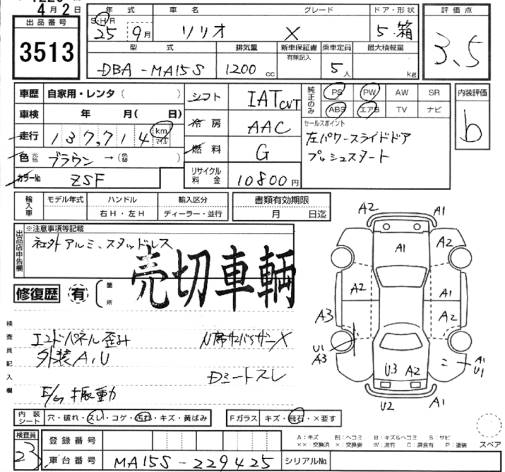 4月2日
出品番号
3513
年式 車名 グレード ドア・形状
S・H・R
25年9月 ソリオ X 5・箱
型式 排気量 新車保証書 乗車定員 最大積載量
有無記入
DBA-MA15S 1200cc 5人 kg
評価点
3.5
車歴 自家用・レンタ( )
車検 年 月( 日)
走行 137,714 km マイル
色 ブラウン → (替)
カラーNo ZSF
シフト IAT CVT
冷房 AAC
燃料 G
リサイクル料金 10800円
純正のみ PS PW AW SR
ABS エアB TV ナビ
セールスポイント
左パワースライドドア
プッシュスタート
内装評価
b
輸入車 モデル年式 ハンドル 輸入区分 書類有効期限
右H・左H ディーラー・並行 月 日迄
出品店申告欄
※注意事項等記載
社外アルミ、スタッドレス
修復歴 有 箇所
売切車輌
検査員記入欄
エンドパネル歪み
外装A,U
E/g振動
Dシートスレ
A2 A1
A1
A2 A2
A3 A2 A1
U1
A3 A1
U1
U3 A2
U2 A1
内装シート 穴・破れ・スレ・コゲ・汚れ・キズ・黄ばみ Fガラス キズ・飛石・×要す
検査員
23
登録番号
車台番号 MA15S-229425 シリアルNo
A:キズ
スペア